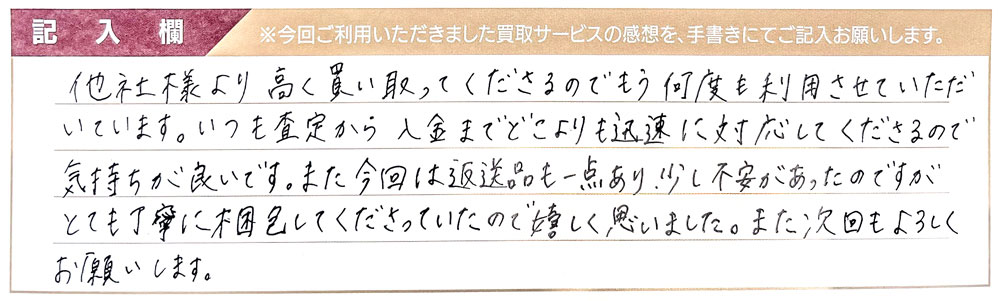 記入欄
※今回ご利用いただきました買取サービスの感想を、手書きにてご記入お願いします。
他社様より高く買い取ってくださるのでもう何度も利用させていただ
いています。いつも査定から入金までどこよりも迅速に対応してくださるので
気持ちが良いです。また今回は返送品も一点あり、少し不安があったのですが
とても丁寧に梱包してくださっていたので嬉しく思いました。また次回もよろしく
お願いします。